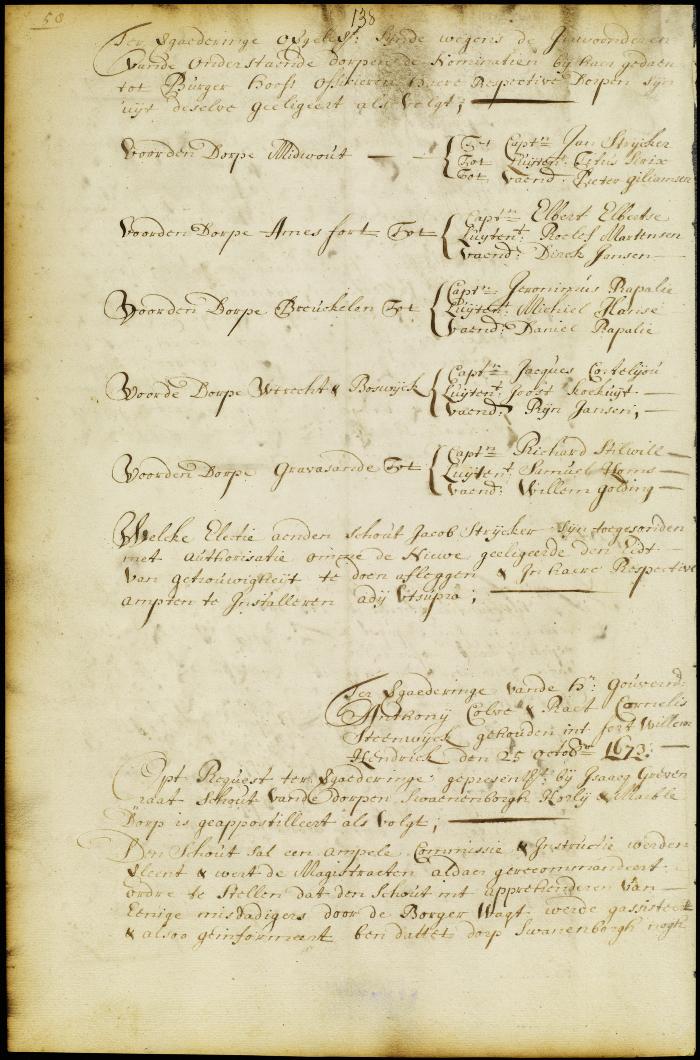 58
138
Ter Vgaederinge opgelesen: sijnde wegens de Inwoonderen
vande onderstaende dorpen de Nominatien bij haer gedaen
tot Burger hooft officieren haere Respective Dorpen sijn
uijt deselve geeligeert als volgt;
Voorden Dorpe Midwout
Tot Captn Jan Strijcker
Tot Luijtent:
Tot vaend: Pieter giliamsen
Voorden Dorpe Amesfort Tot
Captn Elbert Elbertse
Luijtent: Roelef Martensen
vaend: Dirck Jansen
Voorden Dorpe Breuckelen Tot
Captn Jeronimus Rapalie
Luijtent: Michiel Hanse
vaend: Daniel Rapalie
Voorde Dorpe Utrecht & Boswijck
Captn Jacques Cortelijou
Luijtent: Joost Kockuijt
vaend: Rijn Jansen,
Voorden Dorpe Gravasande Tot
Captn Richard Stilwill
Luijtent: Samuel
vaend: Willem golding
Welcke Electie aenden Schout Jacob Strijcker sijn toegesonden
met authorisatie omme de Nieuwe geeligeerde den Eedt
van getrouwigheijt te doen afleggen & In haere Respective
ampten te Installeren adij Utsupra;
Ter Vgaederinge vande Hr: Gouvern:
Anthonij Colve & Raet Cornelis
Steenwijck gehouden int fort Willem
Hendrick den 25 octobr 1673:
Opt Request ter Vgaederinge gepresent: bij Isaacq Greven
raat Schout vande dorpen Swaenenborgh Horlij & Marble
Dorp is geappostilleert als volgt;
Den Schout sal een ampele Commissie & Instructie werden
Vleent & wert de Magistraten aldaer gerecommandeert
ordre te stellen dat den Schout int apprehenderen van
Eenige misdadigers door de Borger Wagt werde gassisteert
& alsoo geinformeert ben dattet dorp Swanenborgh nogh